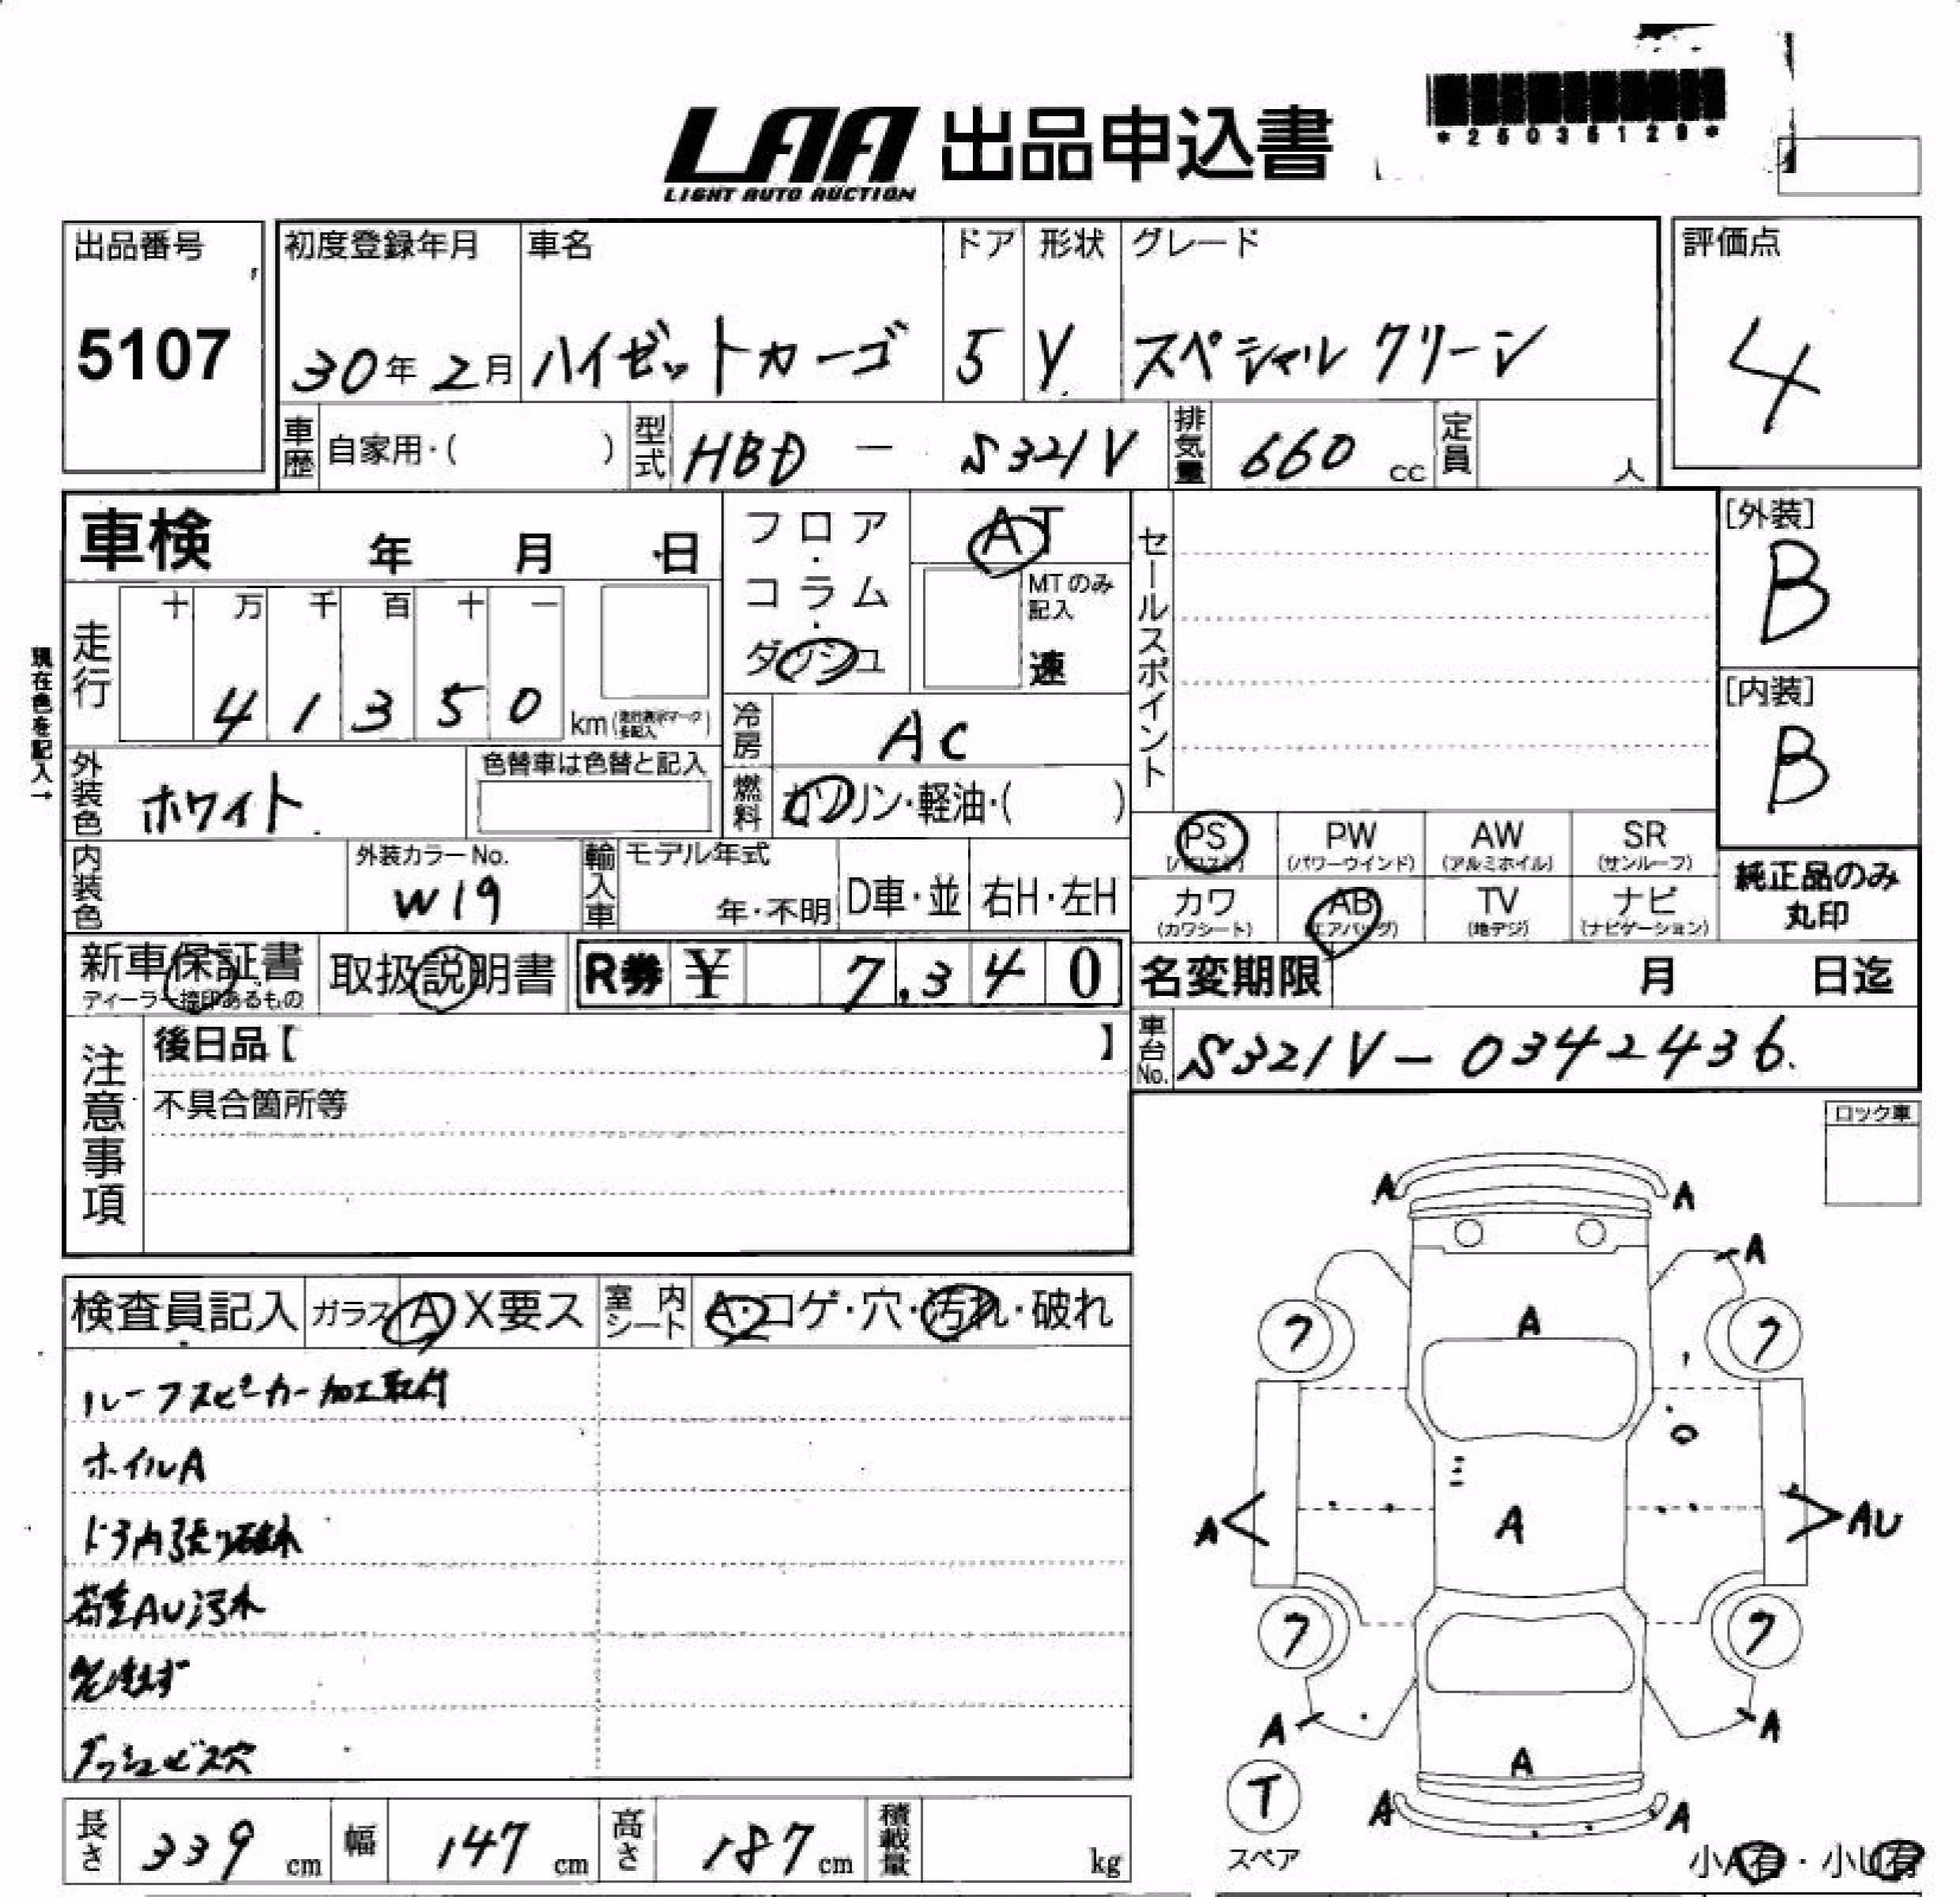 *25036129*
LAA 出品申込書
LIGHT AUTO AUCTION
出品番号 初度登録年月 車名 ドア 形状 グレード 評価点
5107 30年2月 ハイゼットカーゴ 5 V スペシャル クリーン 4
車歴 自家用・( ) 型式 HBD － S321V 排気量 660 cc 定員 人
車検 年 月 日 フロア・コラム・ダッシュ AT
MTのみ記入 速
セールスポイント
[外装]
B
現在色を記入→
走行 十 万 千 百 十 一
4 1 3 5 0 km(走行表示マークを記入)
[内装]
B
冷房 AC
外装色 ホワイト 色替車は色替と記入
燃料 ガソリン・軽油・( )
PS (パワステ) PW (パワーウインド) AW (アルミホイル) SR (サンルーフ)
内装色 外装カラーNo. W19 輸入車 モデル年式 年・不明 D車・並 右H・左H
カワ (カワシート) AB (エアバッグ) TV (地デジ) ナビ (ナビゲーション)
純正品のみ
丸印
新車保証書 取扱説明書 R券 ¥ 7,340
ディーラー捺印あるもの
名変期限 月 日迄
車台No. S321V-0342436.
注意事項
後日品【 】
不具合箇所等
ロック車
検査員記入 ガラス A X要ス 室内シート A・コゲ・穴・汚れ・破れ
ルーフスピーカー加工取付
ホイルA
ドア内張り破れ
荷室AU汚れ
ダッシュビス穴
A A
A
A
7 7
A
A AU
7 7
A A
A
A A
T
スペア
小A有・小U有
長さ 339 cm 幅 147 cm 高さ 187 cm 積載量 kg